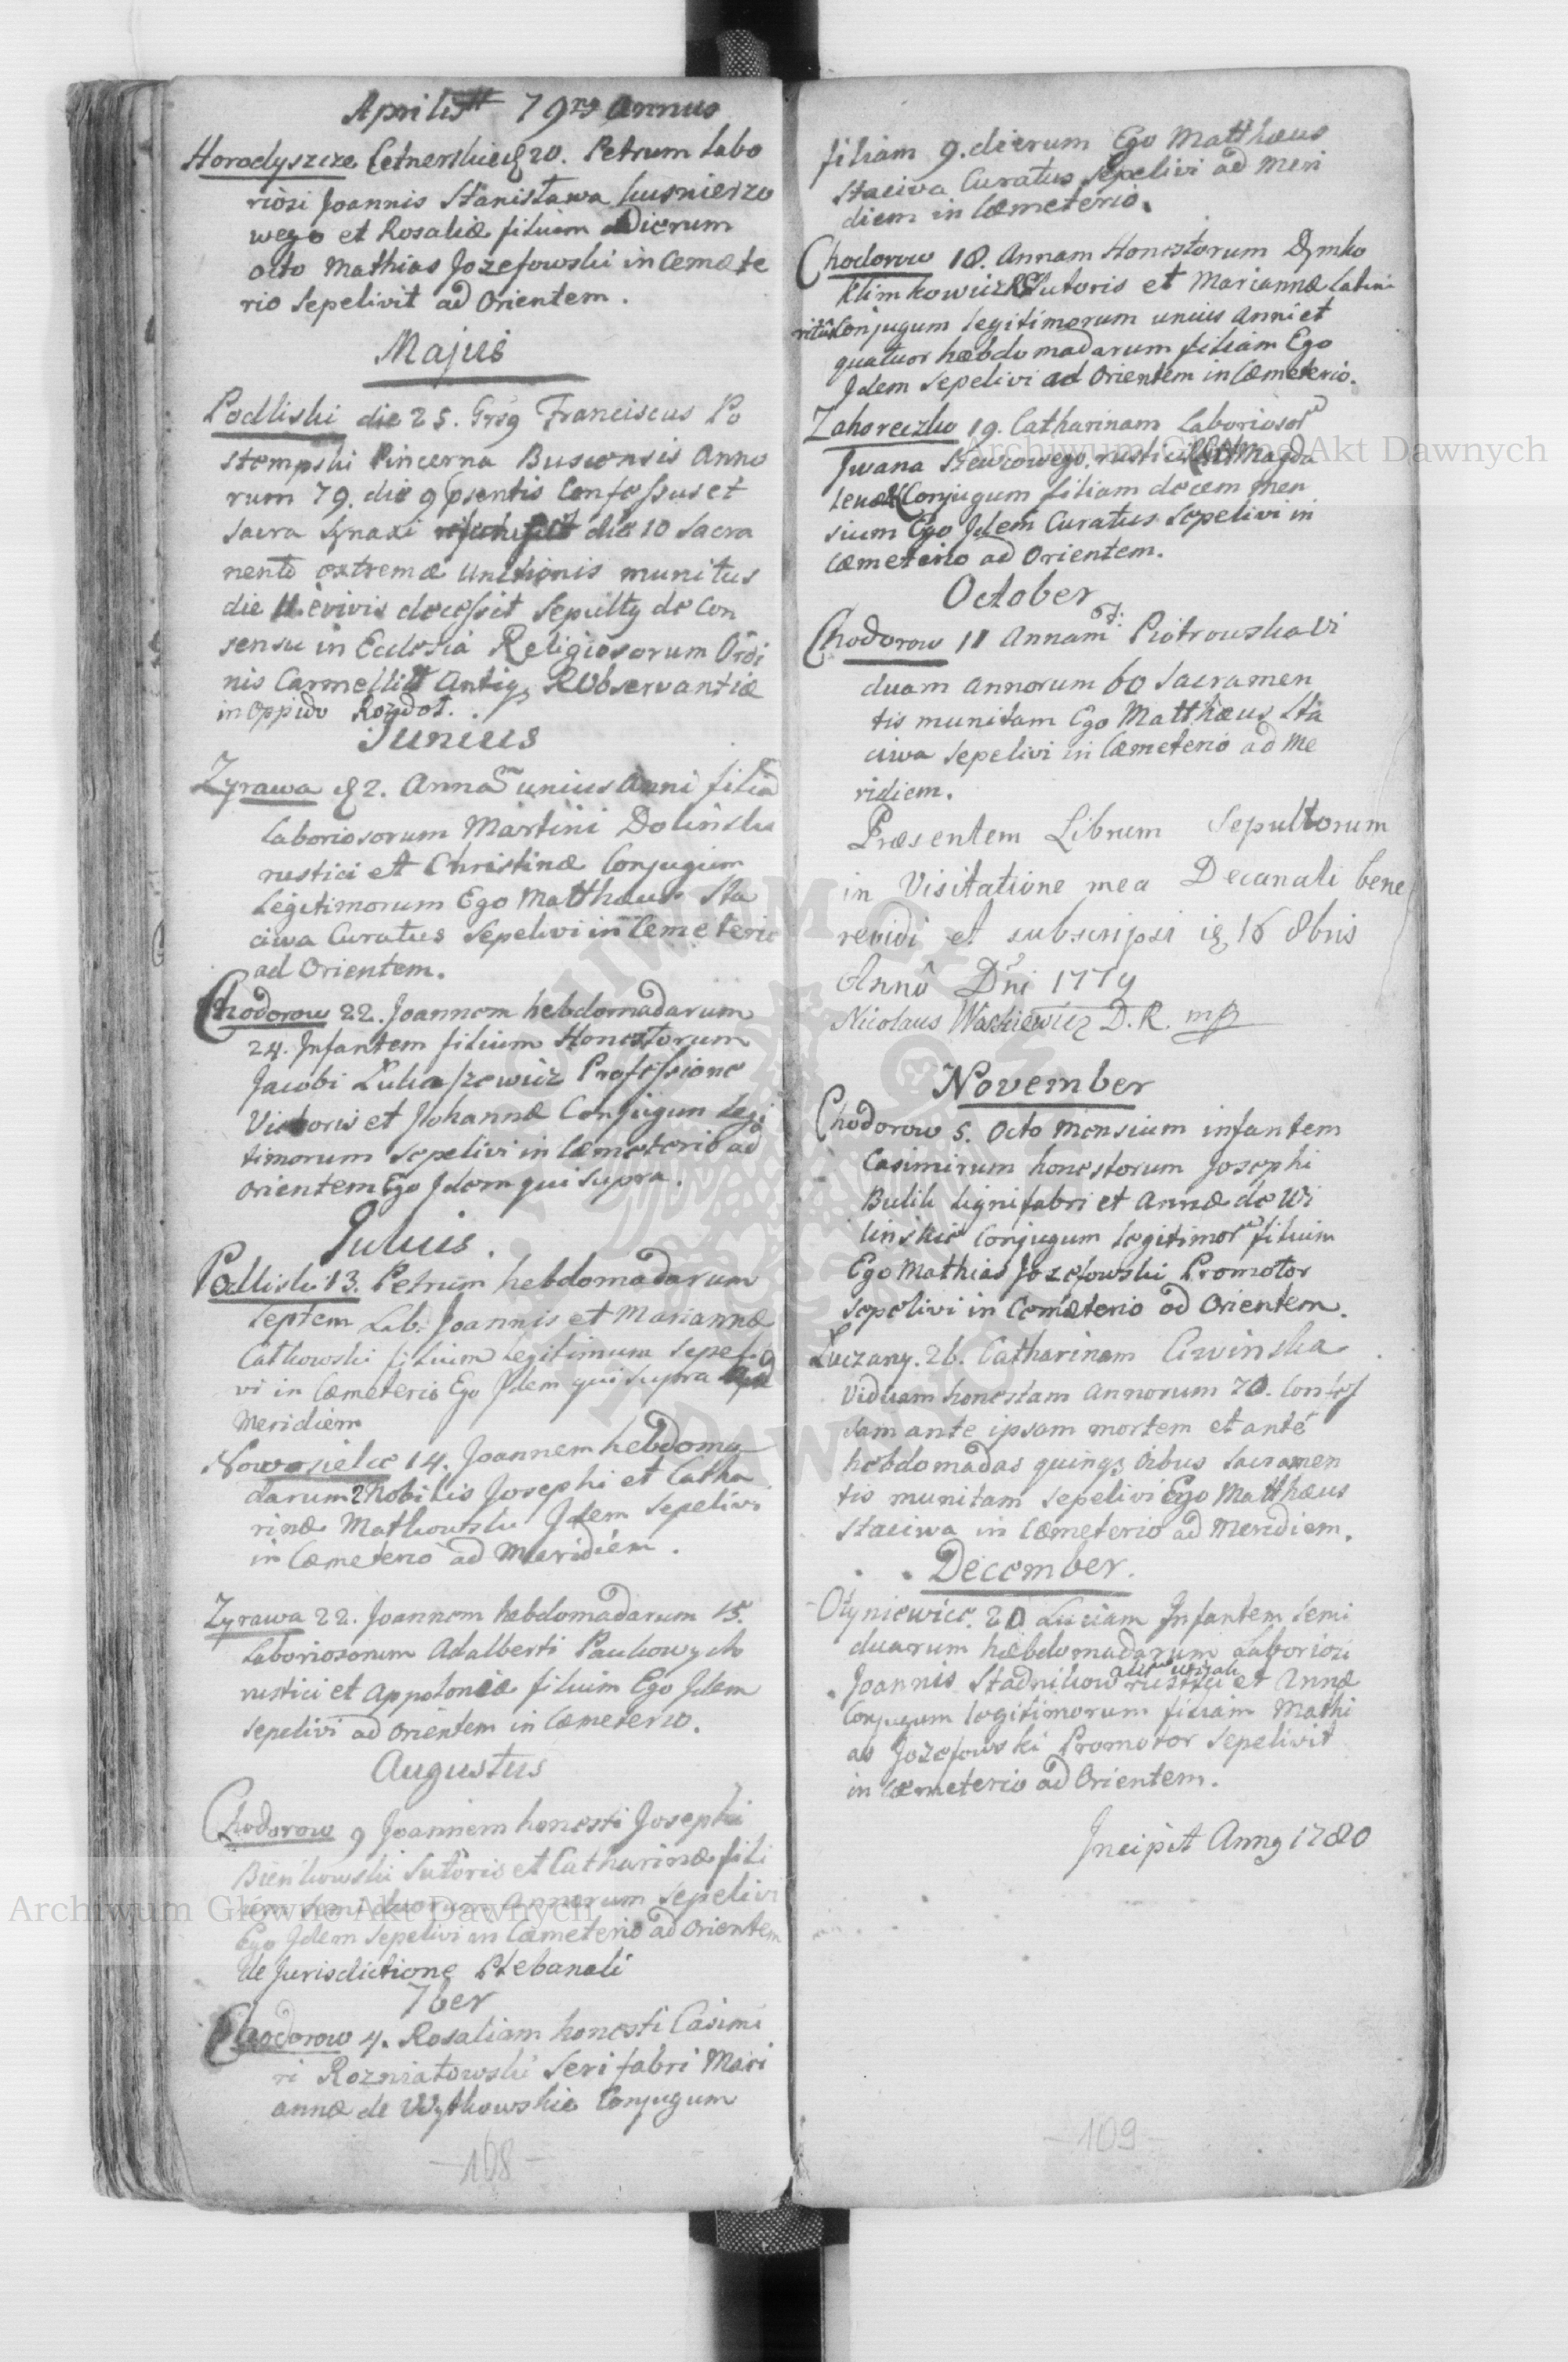 Aprilis 79ns Annus
Horodyszcze Cetnerskie 20. Petrum Labo
riosi Joannis Stanisława kusnierzo
wego et Rosaliæ filium Dierum
octo Mathias Jozefowski in Cemæte
rio Sepelivit ad Orientem.
Majus
Podliski die 25. Franciscus Po
stempski Pincerna Buscensis Anno
rum 79. die 9 psentis Confessus et
Sacra Synaxi die 10 Sacra
mento extremæ Unctionis munitus
die 11 e vivis decessit Sepultq de Con
sensu in Ecclesia Religiosorum Ordi
nis Carmelitt Antiq. Observantiæ
in Oppido Rozdoł.
Junius
Zyrawa 2. Annam unius Anni filiā
Laboriosorum Martini Dolinski
rustici et Christinæ Conjugum
Legitimorum Ego Matthæus Sta
ciwa Curatus Sepelivi in Cemeterio
ad Orientem.
Chodorow 22. Joannem hebdomadarum
24. Infantem filium Honestorum
Jacobi Łukaszewicz Professione
Victoris et Johannæ Conjugun Legi
timorum Sepelivi in Cæmeterio ad
Orientem Ego Idem qui Supra.
Julius.
Podliski 13. Petrum hebdomadarum
Septem Lab. Joannis et Mariannæ
Catkowski filium Legitimum Sepeli
vi in Cæmeterio Ego Idem qui Supra ad
Meridiem
Nowosielce 14. Joannem hebdoma
darum 2 Nobilis Josephi et Catha
rinæ Matkowski Idem Sepelivi
in Cæmeterio ad Meridiem.
Zyrawa 22. Joannem hebdomadarum 15.
Laboriosorum Adalberti Paukowych
rustici et Appoloniæ filium Ego Idem
Sepelivi ad Orientem in Cæmeterio.
Augustus
Chodorow 9 Joannem honesti Josephi
Bienkowski Sutoris et Catharinæ fili
um Semi duorum Annorum Sepelivi
Ego Idem Sepelivi in Cæmeterio ad Orientem
de Jurisdictione Plebanali
7ber
Chodorow 4. Rosaliam honesti Casimi
ri Rozniatowski Serifabri Mari
annæ de Wytkowskie Conjugum
108
filiam 9. dierum Ego Matthæus
Staciwa Curatus Sepelivi ad Meri
diem in Cæmeterio.
Chodorow 18. Annam Honestorum Dymko
Klimkowicz Sutoris et Mariannæ Latini
ritus Conjugum Legitimorum unius Anni et
quatuor hæbdomadarum filiam Ego
Idem Sepelivi ad Orientem in Cæmeterio.
Zahoreczko 19. Catharinam Laborioso
Iwana Szewcowego rustici et Magda
lenæ Conjugum filiam decem men
sium Ego Idem Curatus Sepelivi in
Cæmeterio ad Orientem.
October
Chodorow 11 Annam Piotrowska Vi
duam Annorum 60 Sacramen
tis munitam Ego Matthæus Sta
ciwa Sepelivi in Cæmeterio ad Me
ridiem.
Præsentem Librum Sepultorum
in Visitatione mea Decanali bene
revidi et subscripsi 16 8bris
Annô Dni 1779
Nicolaus Waskiewicz D. R. mp
November
Chodorow 5. Octo Mensium infantem
Casimirum honestorum Josephi
Bulik Lignifabri et Annæ de Wi
linskie Conjugum Legitimor filium
Ego Mathias Jozefowski Promotor
Sepelivi in Cemæterio ad Orientem.
Łuczany. 26. Catharinam Ciwinska
Viduam honestam Annorum 70. Confes
sam ante ipsam mortem et ante
hebdomadas quinq oibus Sacramen
tis munitam Sepelivi Ego Matthæus
Staciwa in Cæmeterio ad Meridiem.
December.
Otyniewice. 20 Luciam Infantem Semi
duarum hæbdomadarum Laboriosi
Joannis Stadnikow rustici et Annæ
Conjugum legitimorum filiam Mathi
as Jozefowski Promotor Sepelivit
in Cæmeterio ad Orientem.
Incipit Annq 1780
109
Archiwum Główne Akt Dawnych
Archiwum Główne Akt Dawnych